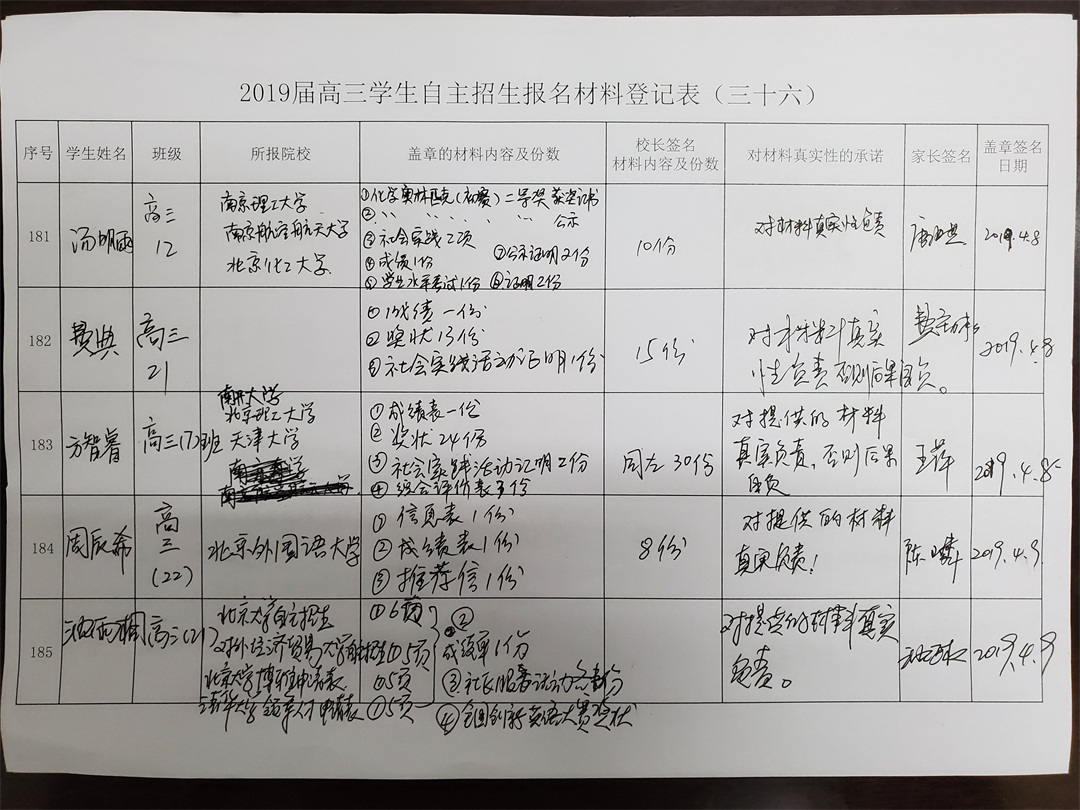 2019届高三学生自主招生报名材料登记表（三十六）
序号 学生姓名 班级 所报院校 盖章的材料内容及份数 校长签名 材料内容及份数 对材料真实性的承诺 家长签名 盖章签名 日期
181 汤明雨 高三 12
南京理工大学
南京航空航天大学
北京化工大学
①化学奥林匹克（初赛）二等奖获奖证书
② 〃 〃 〃 〃 公示
③社会实践2项 ⑦公示证明2份
④成绩1份
⑤学生水平考试1份 ⑥证明2份
10份
对材料真实性负责
2019.4.8
182 费典 高三 21
①成绩一份
②奖状13份
③社会实践活动证明1份
15份
对材料真实
性负责 否则后果自负。
2019.4.8
183 方智睿 高三(7)班
南开大学
北京理工大学
天津大学
①成绩表一份
②奖状24份
③社会实践活动证明2份
④综合评价表3份
同左30份
对提供的材料
真实负责，否则后果
自负
王萍
2019.4.8
184 周辰希 高三 (22)
北京外国语大学
①信息表1份
②成绩表1份
③推荐信1份
8份
对提供的材料
真实负责！
2019.4.9
185 高三(21)
北京大学自主招生 ①6页
对外经济贸易大学自主招生①5页
北京大学博雅申请表 ①5页
清华大学领军人才申请表 ①5页
②
成绩单1份
③社区服务活动
④全国创新英语大赛奖状
对提供的材料真实
负责。
2019.4.9